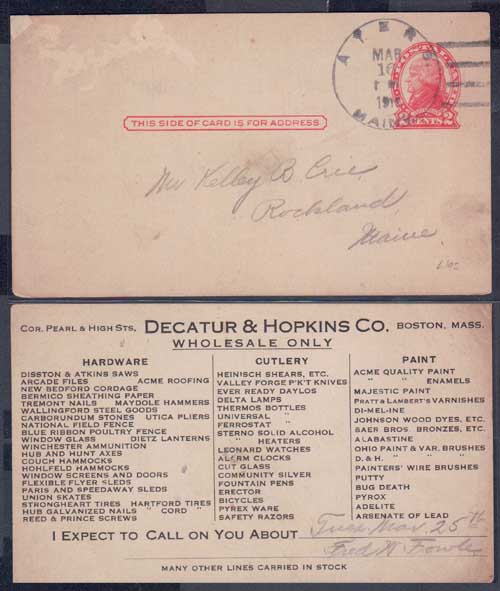 AYERS
MAR
16
191
MAINE
POSTAL
CENTS. 2
THIS SIDE OF CARD IS FOR ADDRESS
Mr Kelley B. Crie,
Rockland,
Maine.
COR. PEARL & HIGH STS, DECATUR & HOPKINS CO. BOSTON, MASS.
WHOLESALE ONLY
HARDWARE
DISSTON & ATKINS SAWS
ARCADE FILES ACME ROOFING
NEW BEDFORD CORDAGE
BERMICO SHEATHING PAPER
TREMONT NAILS MAYDOLE HAMMERS
WALLINGFORD STEEL GOODS
CARBORUNDUM STONES UTICA PLIERS
NATIONAL FIELD FENCE
BLUE RIBBON POULTRY FENCE
WINDOW GLASS DIETZ LANTERNS
WINCHESTER AMMUNITION
HUB AND HUNT AXES
COUCH HAMMOCKS
HOHLFELD HAMMOCKS
WINDOW SCREENS AND DOORS
FLEXIBLE FLYER SLEDS
PARIS AND SPEEDAWAY SLEDS
UNION SKATES
STRONGHEART TIRES HARTFORD TIRES
HUB GALVANIZED NAILS " CORD "
REED & PRINCE SCREWS
CUTLERY
HEINISCH SHEARS, ETC.
VALLEY FORGE P'K'T KNIVES
EVER READY DAYLOS
DELTA LAMPS
THERMOS BOTTLES
UNIVERSAL "
FERROSTAT "
STERNO SOLID ALCOHOL
" HEATERS
LEONARD WATCHES
ALARM CLOCKS
CUT GLASS
COMMUNITY SILVER
FOUNTAIN PENS
ERECTOR
BICYCLES
PYREX WARE
SAFETY RAZORS
PAINT
ACME QUALITY PAINT
" " ENAMELS
MAJESTIC PAINT
PRATT & LAMBERT'S VARNISHES
DI-MEL-INE
JOHNSON WOOD DYES, ETC.
BAER BROS. BRONZES, ETC.
ALABASTINE
OHIO PAINT & VAR. BRUSHES
D. & H. " " "
PAINTERS' WIRE BRUSHES
PUTTY
BUG DEATH
PYROX
ADELITE
ARSENATE OF LEAD
I EXPECT TO CALL ON YOU ABOUT Tues Mar. 25th
Fred W Fowle
MANY OTHER LINES CARRIED IN STOCK